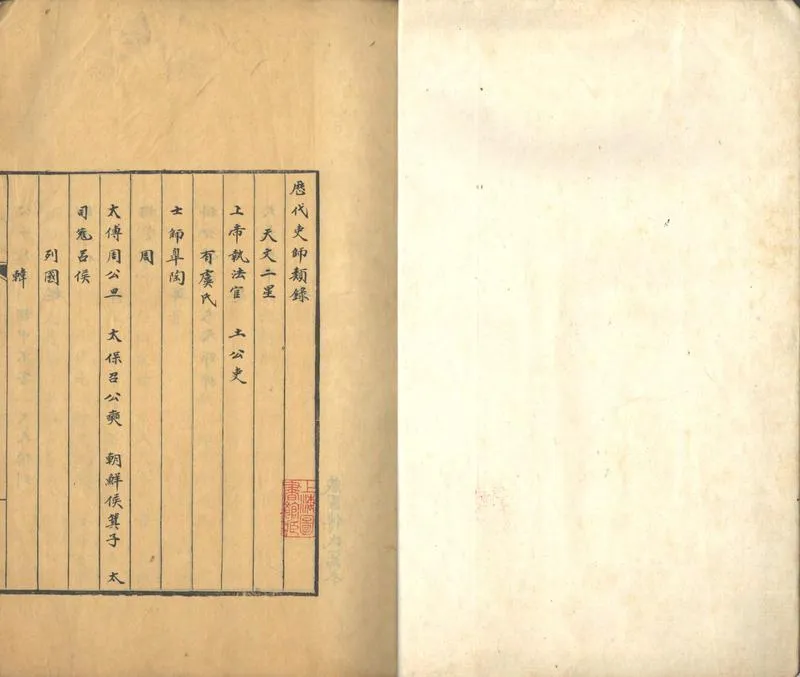 歷代吏師類錄
天文二星
上帝執法官 土公吏
有虞氏
士師臯陶
周
太傅周公旦 太保召公奭 朝鮮侯箕子 太
司寇呂侯
列國
韓
上海圖書館印